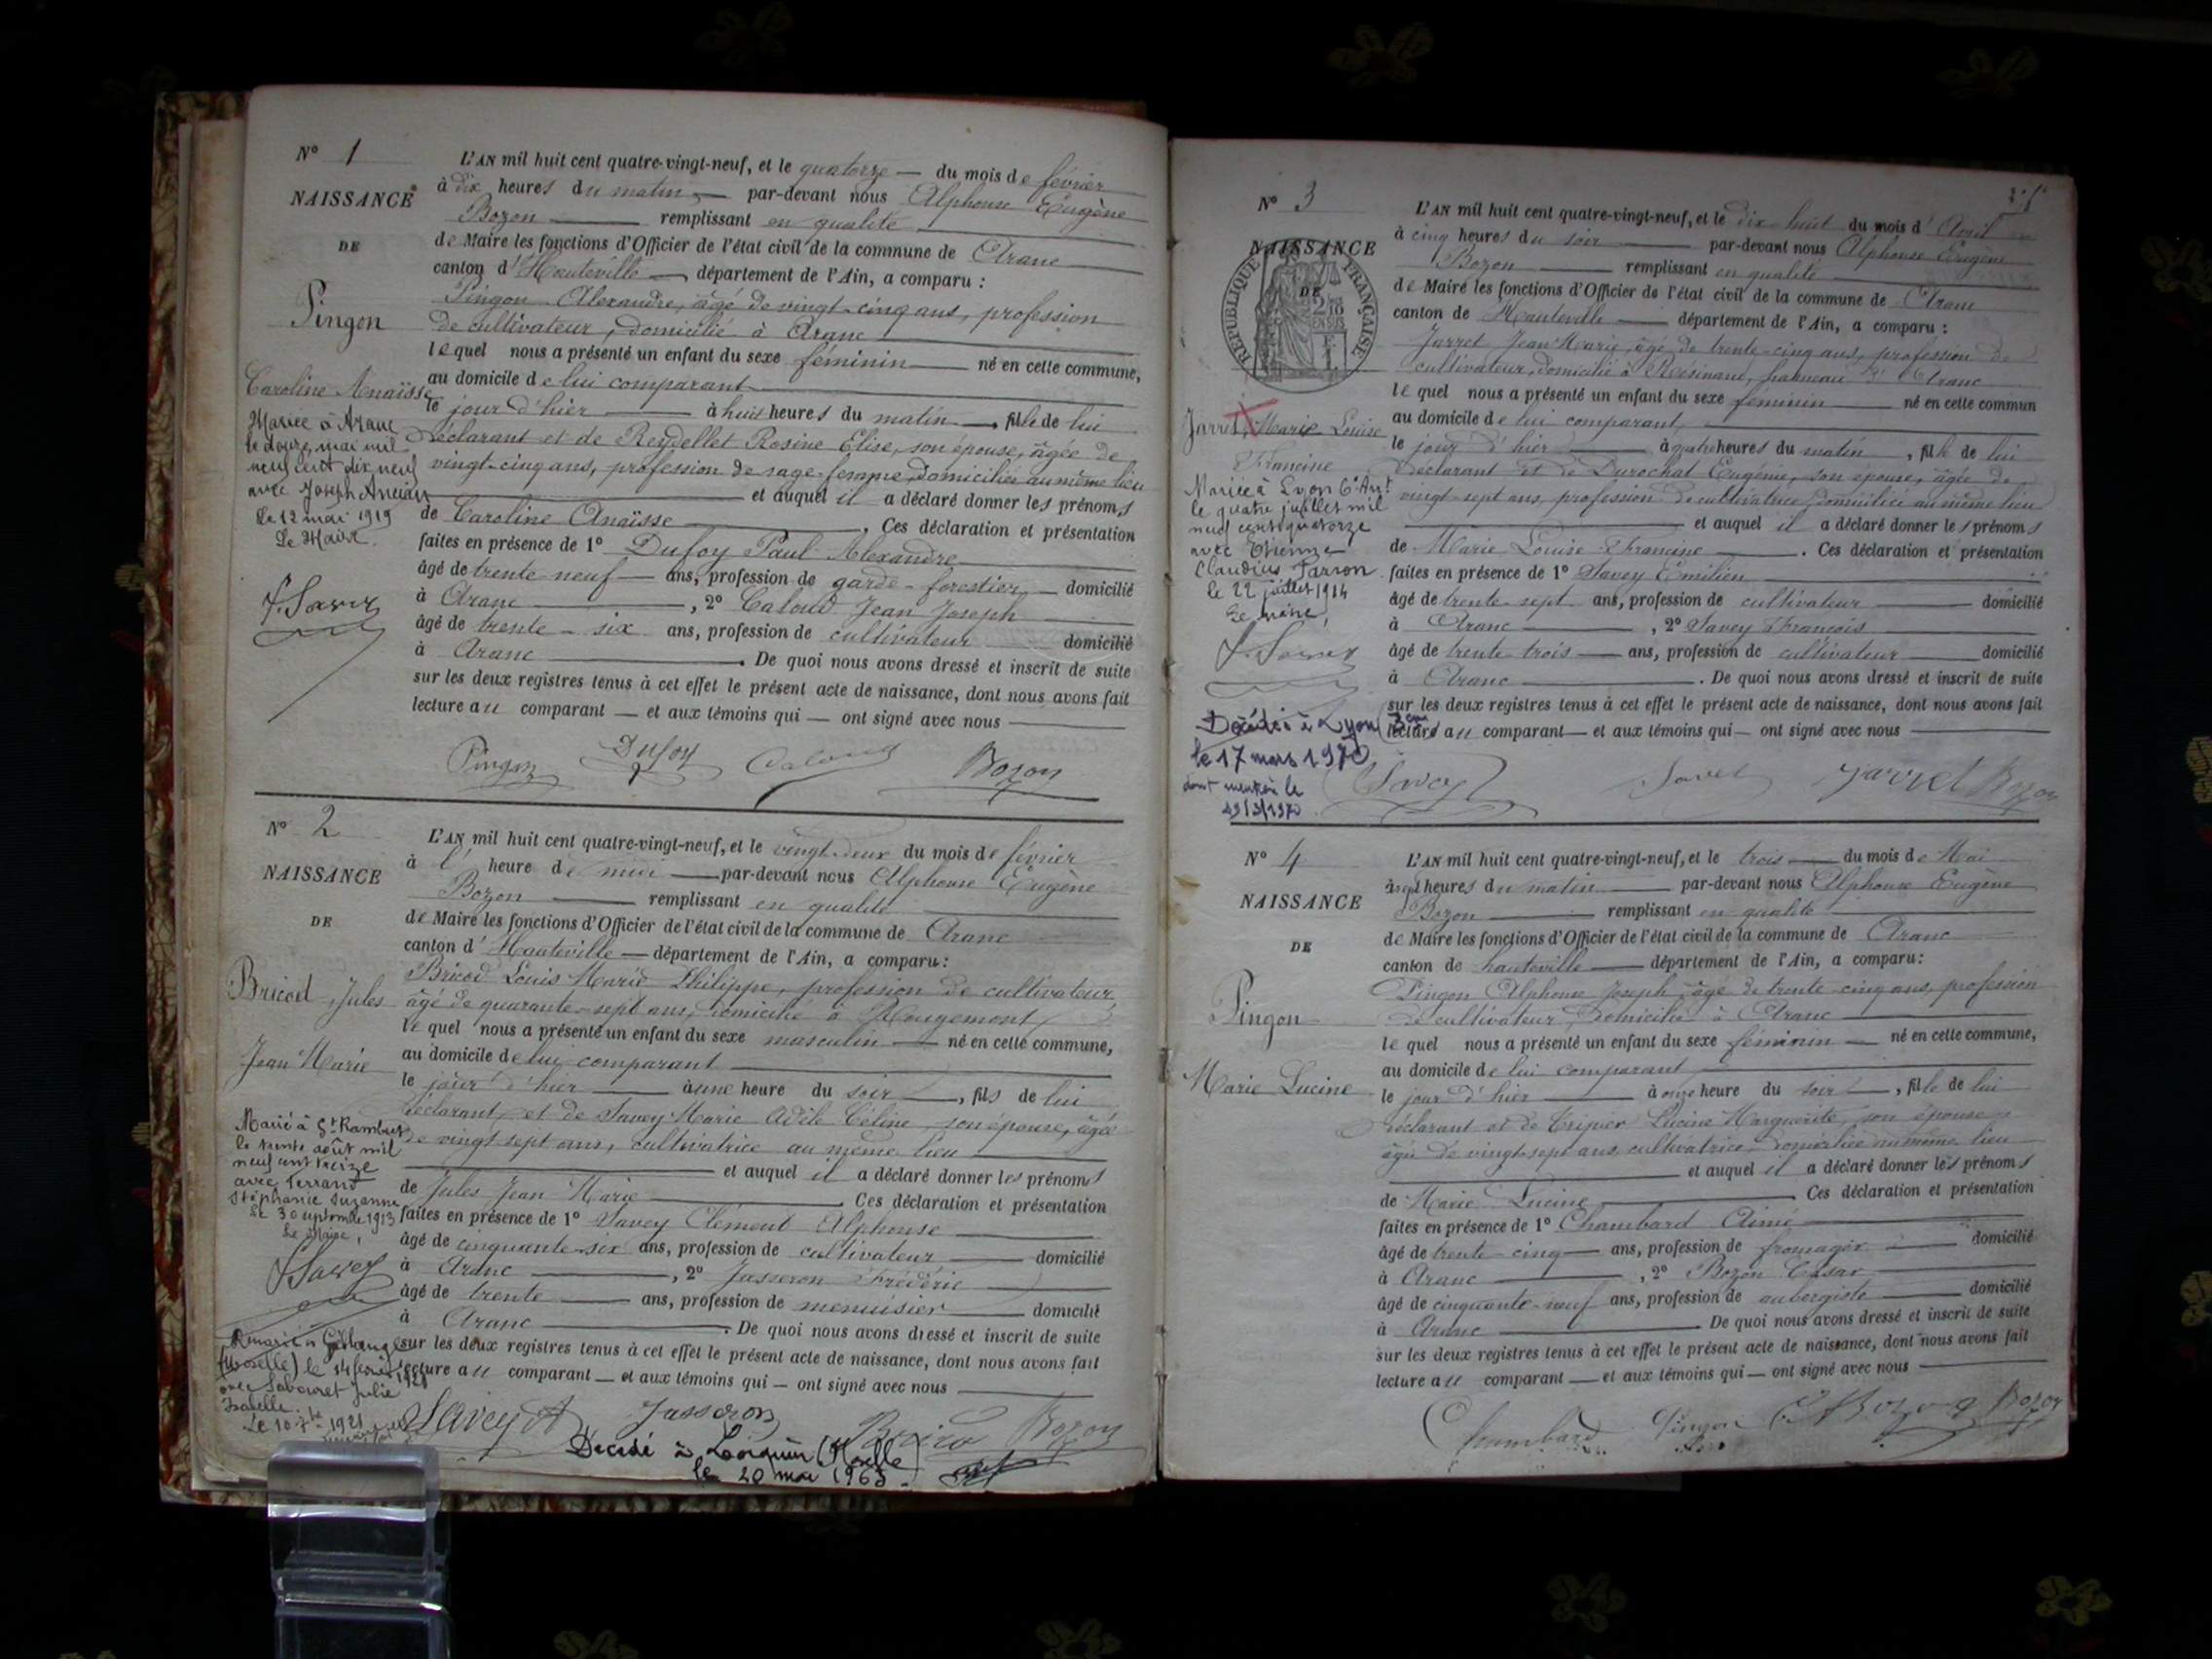 N° 1
NAISSANCE
DE
Pingon
Caroline Anaïsse
Mariée à Aranc
le douze mai mil
neuf cent dix neuf
avec Joseph Ancian
Le 12 mai 1919
Le Maire
L'AN mil huit cent quatre-vingt-neuf, et le quatorze — du mois de février
à dix heures du matin — par-devant nous Alphonse Eugène
Bozon — remplissant en qualité
de Maire les fonctions d'Officier de l'état civil de la commune de Aranc
canton d'Hauteville — département de l'Ain, a comparu :
Pingon Alexandre, âgé de vingt-cinq ans, profession
de cultivateur, domicilié à Aranc
lequel nous a présenté un enfant du sexe féminin — né en cette commune,
au domicile de lui comparant
le jour d'hier — à huit heures du matin — fille de lui
déclarant et de Reydellet Rosine Elise, son épouse, âgée de
vingt-cinq ans, profession de sage-femme, domiciliée au même lieu
— et auquel il a déclaré donner les prénoms
de Caroline Anaïsse — . Ces déclaration et présentation
faites en présence de 1° Dufoy Paul Alexandre
âgé de trente neuf — ans, profession de garde-forestier — domicilié
à Aranc — , 2° Caloud Jean Joseph
âgé de trente-six ans, profession de cultivateur domicilié
à Aranc — . De quoi nous avons dressé et inscrit de suite
sur les deux registres tenus à cet effet le présent acte de naissance, dont nous avons fait
lecture au comparant — et aux témoins qui — ont signé avec nous
Pingon Dufoy Caloud Bozon
N° 2
NAISSANCE
DE
Bricod Jules
Jean Marie
Marié à St Rambert
le trente août mil
neuf cent treize
avec Ferrand
Stéphanie Suzanne
Le 30 septembre 1913
Le Maire,
(Moselle) le 14 février 1921
avec Julie
Isabelle
L'AN mil huit cent quatre-vingt-neuf, et le vingt-deux du mois de février
à l' heure de midi — par-devant nous Alphonse Eugène
Bozon — remplissant en qualité
de Maire les fonctions d'Officier de l'état civil de la commune de Aranc
canton d'Hauteville — département de l'Ain, a comparu :
Bricod Louis Marie Philippe, profession de cultivateur,
âgé de quarante-sept ans, domicilié à Rougemont
lequel nous a présenté un enfant du sexe masculin — né en cette commune,
au domicile de lui comparant
le jour d'hier — à une heure du soir — , fils de lui
déclarant, et de Savey Marie Adèle Céline, son épouse, âgée
de vingt sept ans, cultivatrice au même lieu
— et auquel il a déclaré donner les prénoms
de Jules Jean Marie — Ces déclaration et présentation
faites en présence de 1° Savey Clément Alphonse
âgé de cinquante-six ans, profession de cultivateur — domicilié
à Aranc — , 2° Jasseron Frédéric
âgé de trente — ans, profession de menuisier — domicilié
à Aranc — . De quoi nous avons dressé et inscrit de suite
sur les deux registres tenus à cet effet le présent acte de naissance, dont nous avons fait
lecture au comparant — et aux témoins qui — ont signé avec nous
Savey A Jasseron Bozon
Décédé à Lorquin (Moselle)
le 20 mai 1965.
N° 3
NAISSANCE
DE
RÉPUBLIQUE FRANÇAISE
Jarret, Marie Louise
Francine
Mariée à Lyon 6e Art
le quatre juillet mil
neuf cent quatorze
avec Etienne
Claudius Parron
Le 22 juillet 1914
Le maire,
Décédée à Lyon
le 17 mars 1970
dont mention le
L'AN mil huit cent quatre-vingt-neuf, et le dix huit du mois d'Avril
à cinq heures du soir — par-devant nous Alphonse Eugène
Bozon — remplissant en qualité
de Maire les fonctions d'Officier de l'état civil de la commune de Aranc
canton de Hauteville — département de l'Ain, a comparu :
Jarret Jean Marie, âgé de trente-cinq ans, profession de
cultivateur, domicilié à Résinand, hameau d'Aranc
lequel nous a présenté un enfant du sexe féminin — né en cette commun
au domicile de lui comparant
le jour d'hier — à quatre heures du matin , fille de lui
déclarant et de Durochat Eugénie, son épouse, âgée de
vingt sept ans, profession de cultivatrice, domiciliée au même lieu
— et auquel il a déclaré donner les prénoms
de Marie Louise Francine — . Ces déclaration et présentation
faites en présence de 1° Savey Emilien
âgé de trente-sept ans, profession de cultivateur — domicilié
à Aranc — , 2° Savey François
âgé de trente-trois — ans, profession de cultivateur — domicilié
à Aranc — . De quoi nous avons dressé et inscrit de suite
sur les deux registres tenus à cet effet le présent acte de naissance, dont nous avons fait
lecture au comparant — et aux témoins qui — ont signé avec nous
Savey Savey Jarret Bozon
N° 4
NAISSANCE
DE
Pingon
Marie Lucine
L'AN mil huit cent quatre-vingt-neuf, et le trois — du mois de Mai
à sept heures du matin — par-devant nous Alphonse Eugène
Bozon — remplissant en qualité
de Maire les fonctions d'Officier de l'état civil de la commune de Aranc
canton de hauteville — département de l'Ain, a comparu :
Pingon Alphonse Joseph, âgé de trente-cinq ans, profession
de cultivateur, domicilié à Aranc
lequel nous a présenté un enfant du sexe féminin — né en cette commune,
au domicile de lui comparant
le jour d'hier — à onze heure du soir — , fille de lui
déclarant et de Tripier Lucine Marguerite, son épouse
âgée de vingt-sept ans, cultivatrice, domiciliée au même lieu
— et auquel il a déclaré donner les prénoms
de Marie Lucine — Ces déclaration et présentation
faites en présence de 1° Chambard Aimé
âgé de trente-cinq — ans, profession de fromager — domicilié
à Aranc — , 2° Bozon César
âgé de cinquante-neuf ans, profession de aubergiste — domicilié
à Aranc — De quoi nous avons dressé et inscrit de suite
sur les deux registres tenus à cet effet le présent acte de naissance, dont nous avons fait
lecture au comparant — et aux témoins qui — ont signé avec nous
Chambard Pingon Bozon Bozon